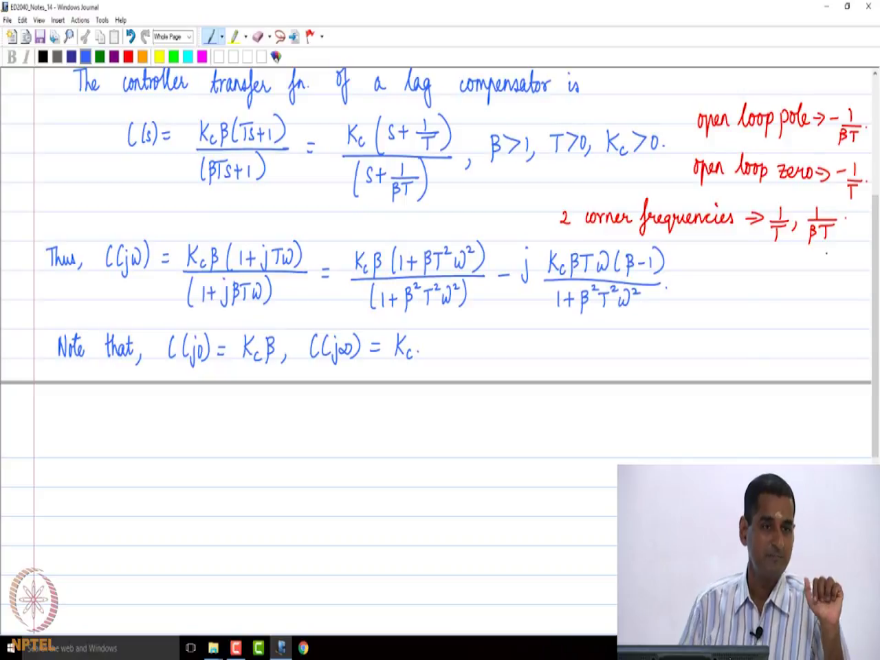 ED2040_Notes_14 - Windows Journal
File Edit View Insert Actions Tools Help
Whole Page
B I
The controller transfer fn. of a lag compensator is
C(s) = K_c β(Ts+1) / (βTs+1) = K_c (s + 1/T) / (s + 1/βT), β>1, T>0, K_c>0.
open loop pole ⇒ -1/βT
open loop zero ⇒ -1/T.
2 corner frequencies ⇒ 1/T, 1/βT.
Thus, C(jω) = K_c β (1+jTω) / (1+jβTω) = K_c β (1+βT²ω²) / (1+β²T²ω²) - j K_c βTω(β-1) / 1+β²T²ω².
Note that, C(j0) = K_c β, C(j∞) = K_c.
NPTEL
the web and Windows